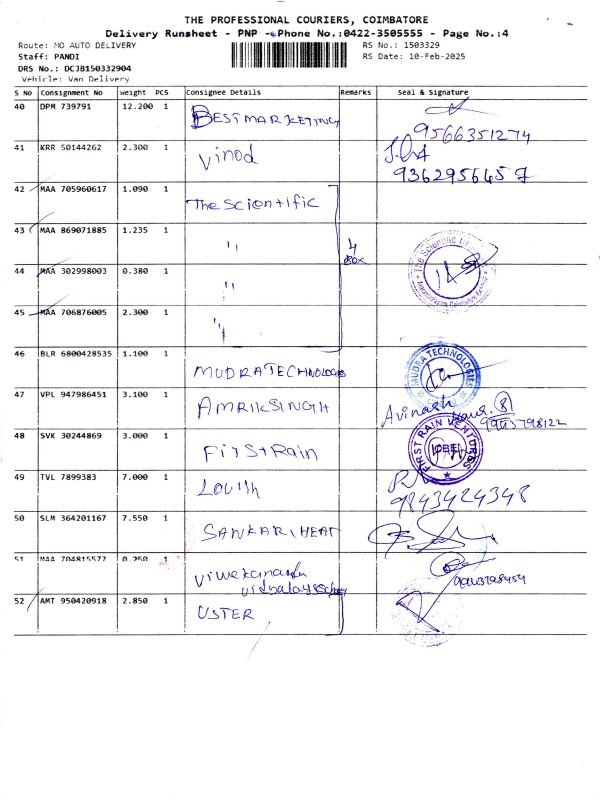 THE PROFESSIONAL COURIERS, COIMBATORE
Delivery Runsheet - PNP - Phone No.:0422-3505555 - Page No.:4
Route: MO AUTO DELIVERY RS No.: 1503329
Staff: PANDI RS Date: 10-Feb-2025
DRS No.: DCJB150332904
Vehicle: Van Delivery
S No Consignment No Weight PCS Consignee Details Remarks Seal & Signature
40 DPM 739791 12.200 1 BESTMARKETING 9566351274
41 KRR 50144262 2.300 1 Vinod 9362956457
42 MAA 705960617 1.090 1 The Scientific
43 MAA 869071885 1.235 1 " 4 Box
44 MAA 302998003 0.380 1 "
45 MAA 706876005 2.300 1 "
46 BLR 6800428535 1.100 1 MUDRATECHNOLOGIES MUDRA TECHNOLOGIES
47 VPL 947986451 3.100 1 AMRIKSINGH Avinash 8
48 SVK 30244869 3.000 1 FirstRain FIRST RAIN VENTURES
49 TVL 7899383 7.000 1 9843424348
50 SLM 364201167 7.550 1 SANKARIHEAT
51 MAA 704815577 0.250 1
52 AMT 950420918 2.850 1 USTER